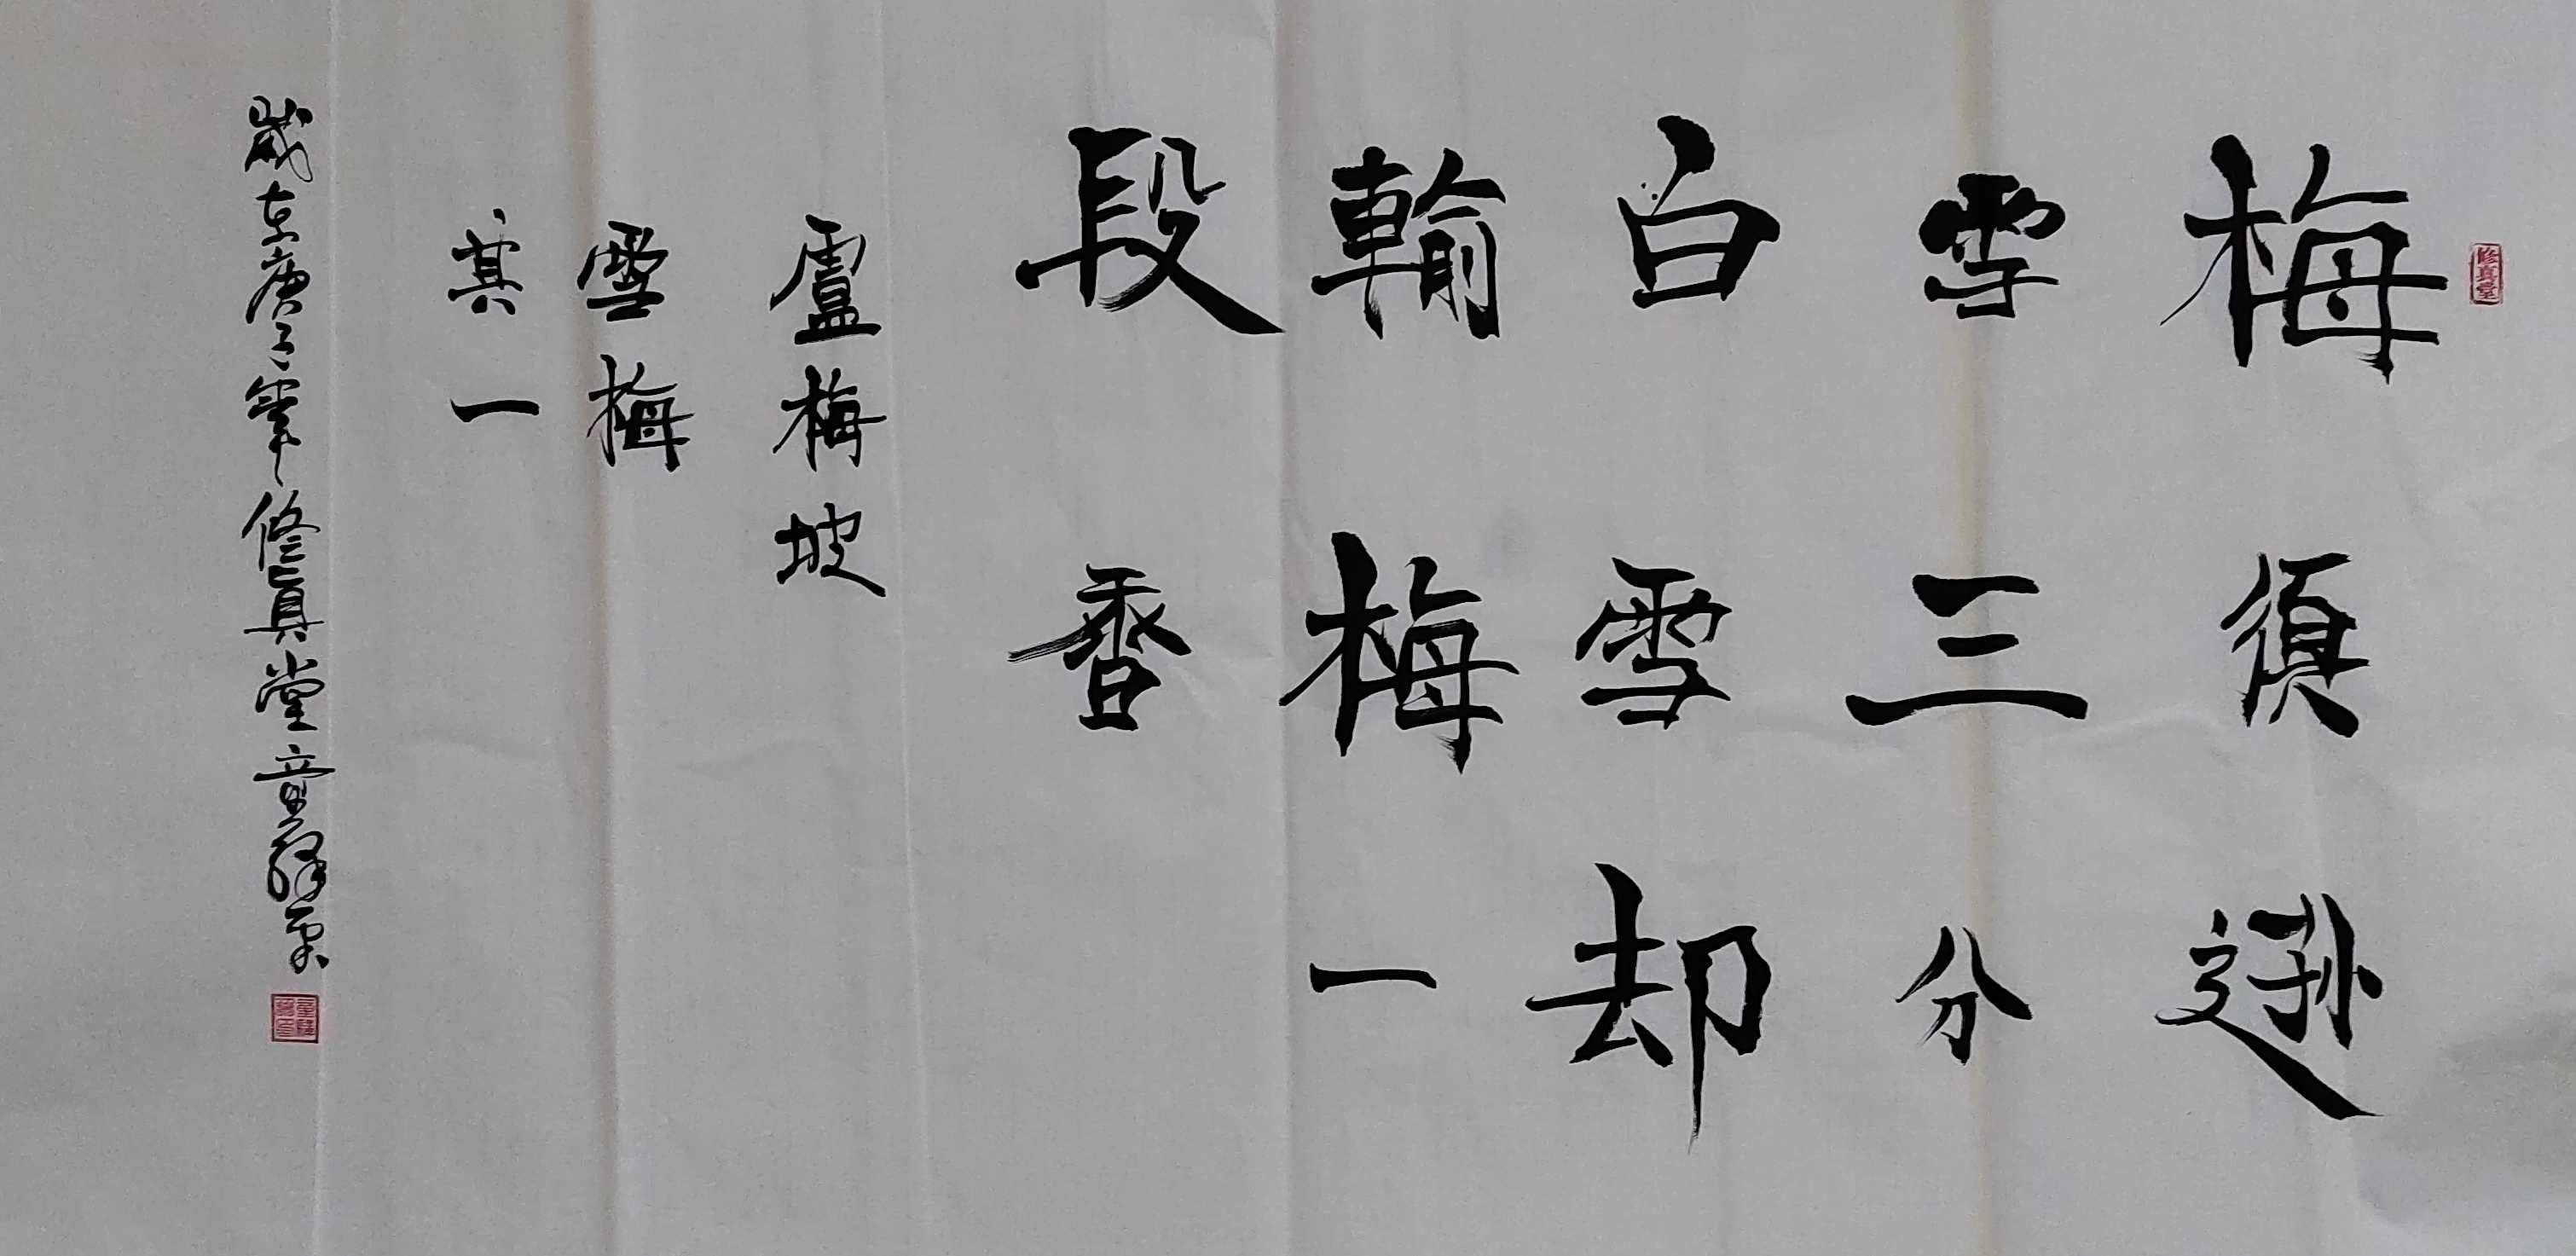 修真堂
梅須遜
雪三分
白雪却
輸梅一
段香
盧梅坡
雪梅
其一
歲在庚子肇修真堂章驛